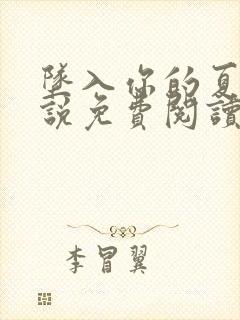 墜入你的夏
說免費閱讀
李冒翼